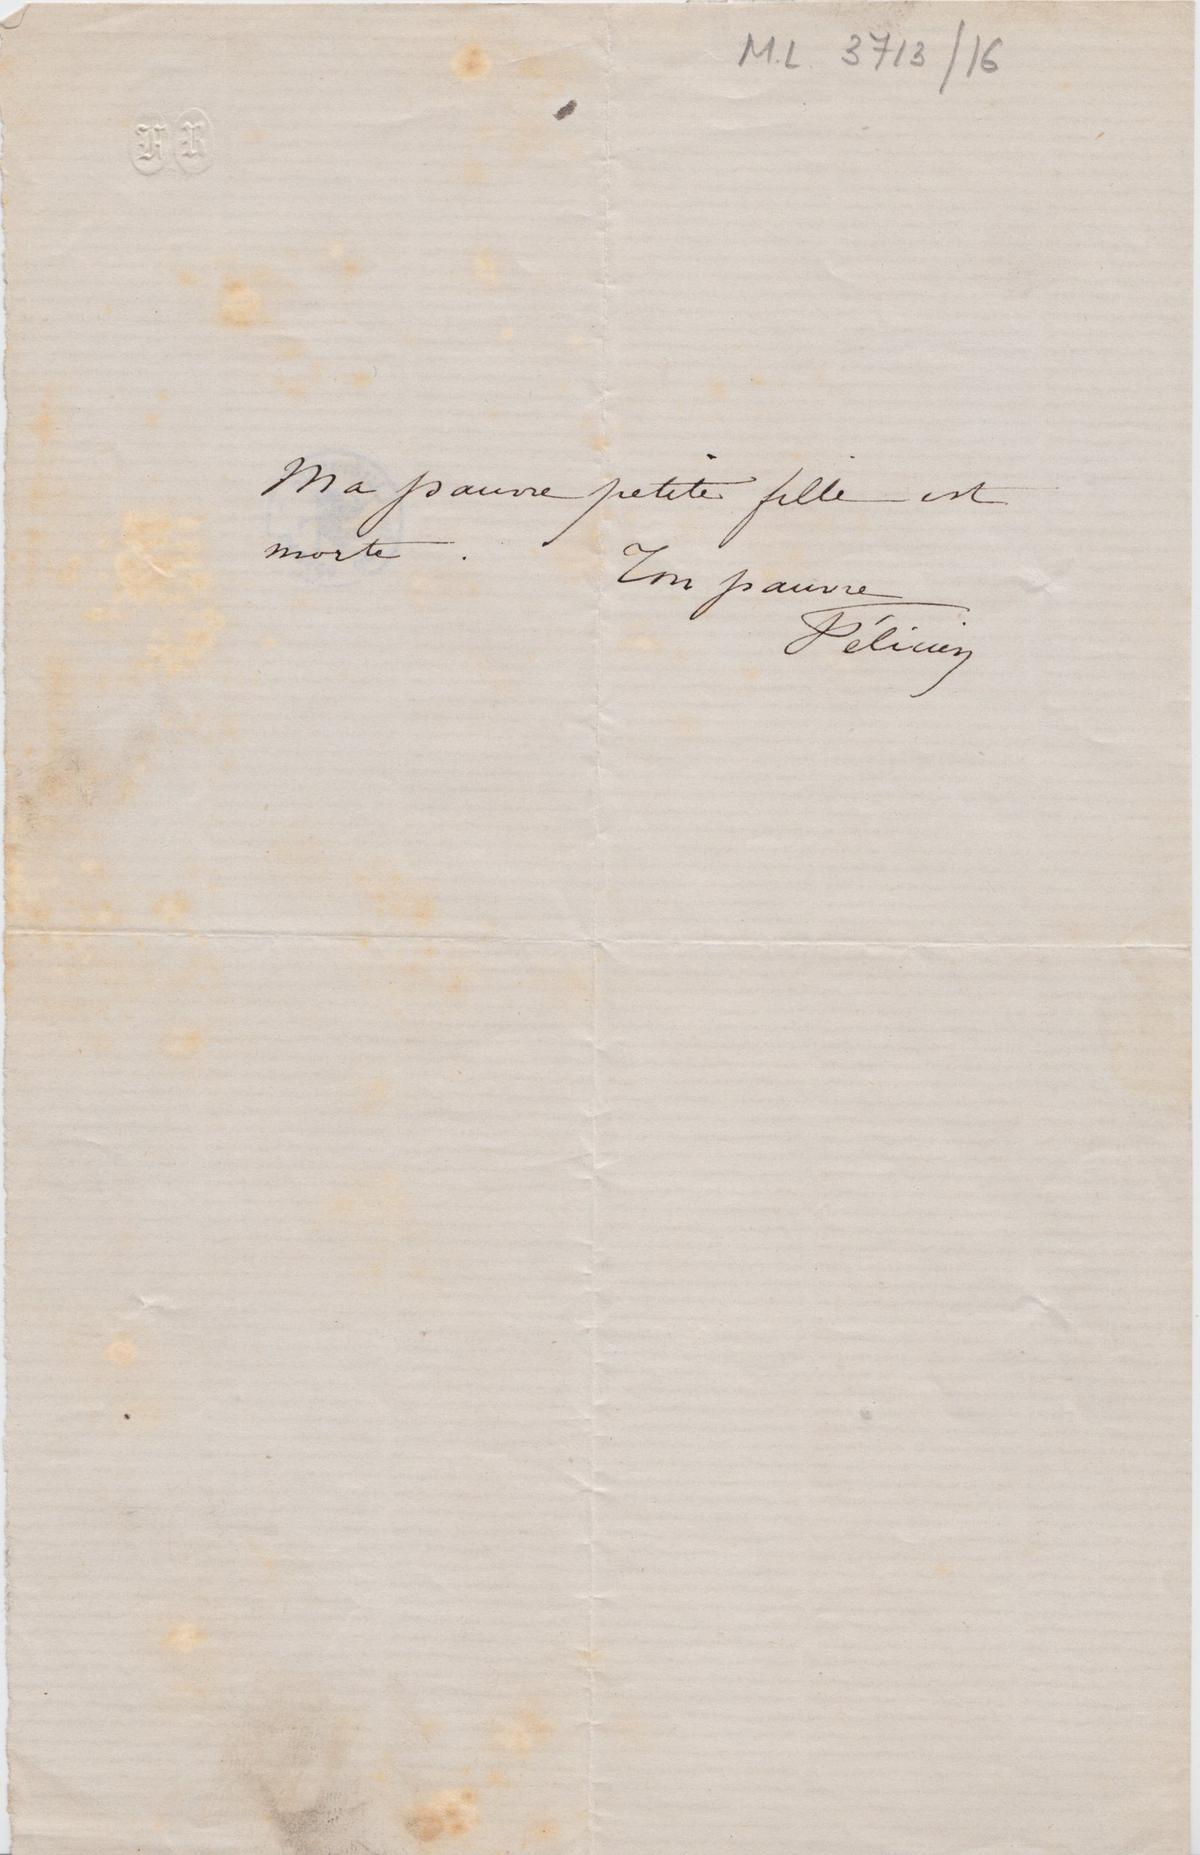 M.L. 3713/16
F R
Ma pauvre petite fille est
morte .
Ton pauvre
Félicien